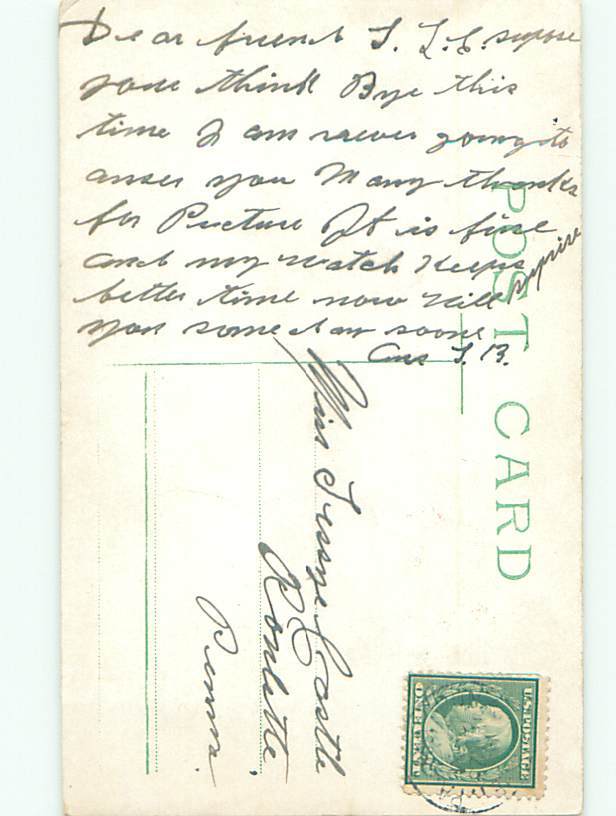 Dear friend T. L. C. supose
youe think Bye this
time I am never going to
anser you Many thanks
for Picture It is fine
and my watch keeps
better time now will suprise
you some day soone
Ans T. B.
POST CARD
Miss Tressye Castle
Roulette,
Penna.
U.S. POSTAGE
ONE CENT